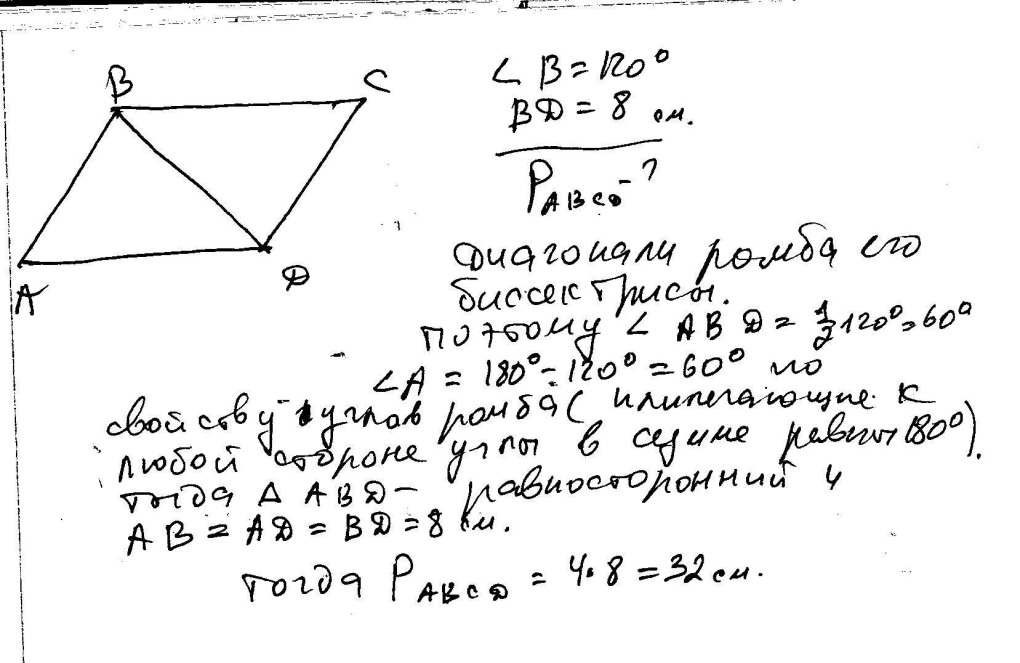 B
C
A
D
∠ B = 120°
BD = 8 см.
P ABCD - ?
Диагонали ромба его
биссектрисы.
Поэтому ∠ ABD = 1/2 120° = 60°
∠A = 180° - 120° = 60° по
свойству углов ромба (прилегающие к
любой стороне углы в сумме равны 180°).
Тогда Δ ABD - равносторонний и
AB = AD = BD = 8 см.
Тогда P ABCD = 4·8 = 32 см.